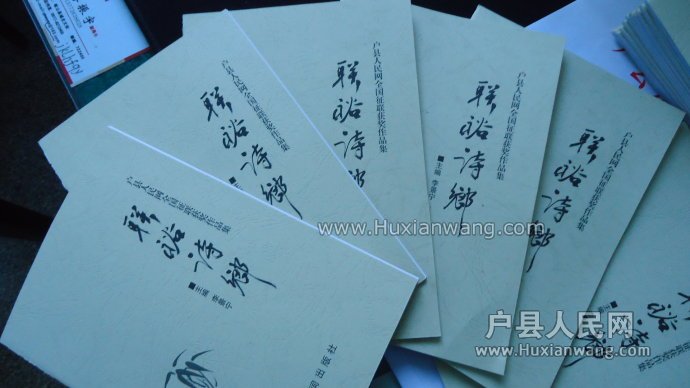 户县人民网全国征联获奖作品集
联裕诗乡
户县人民网全国征联获奖作品集
联裕诗鄉
■主编 李景宁
户县人民网全国征联获奖作品集
联裕诗鄉
■主编 李景宁
户县人民网全国征联获奖作品集
联裕诗鄉
■主编
户县人民网全国征联获奖作品集
联裕诗鄉
■主编 李景宁
出版社
诗鄉
■主编
www.Huxianwang.com
户县人民网
www.Huxianwang.com